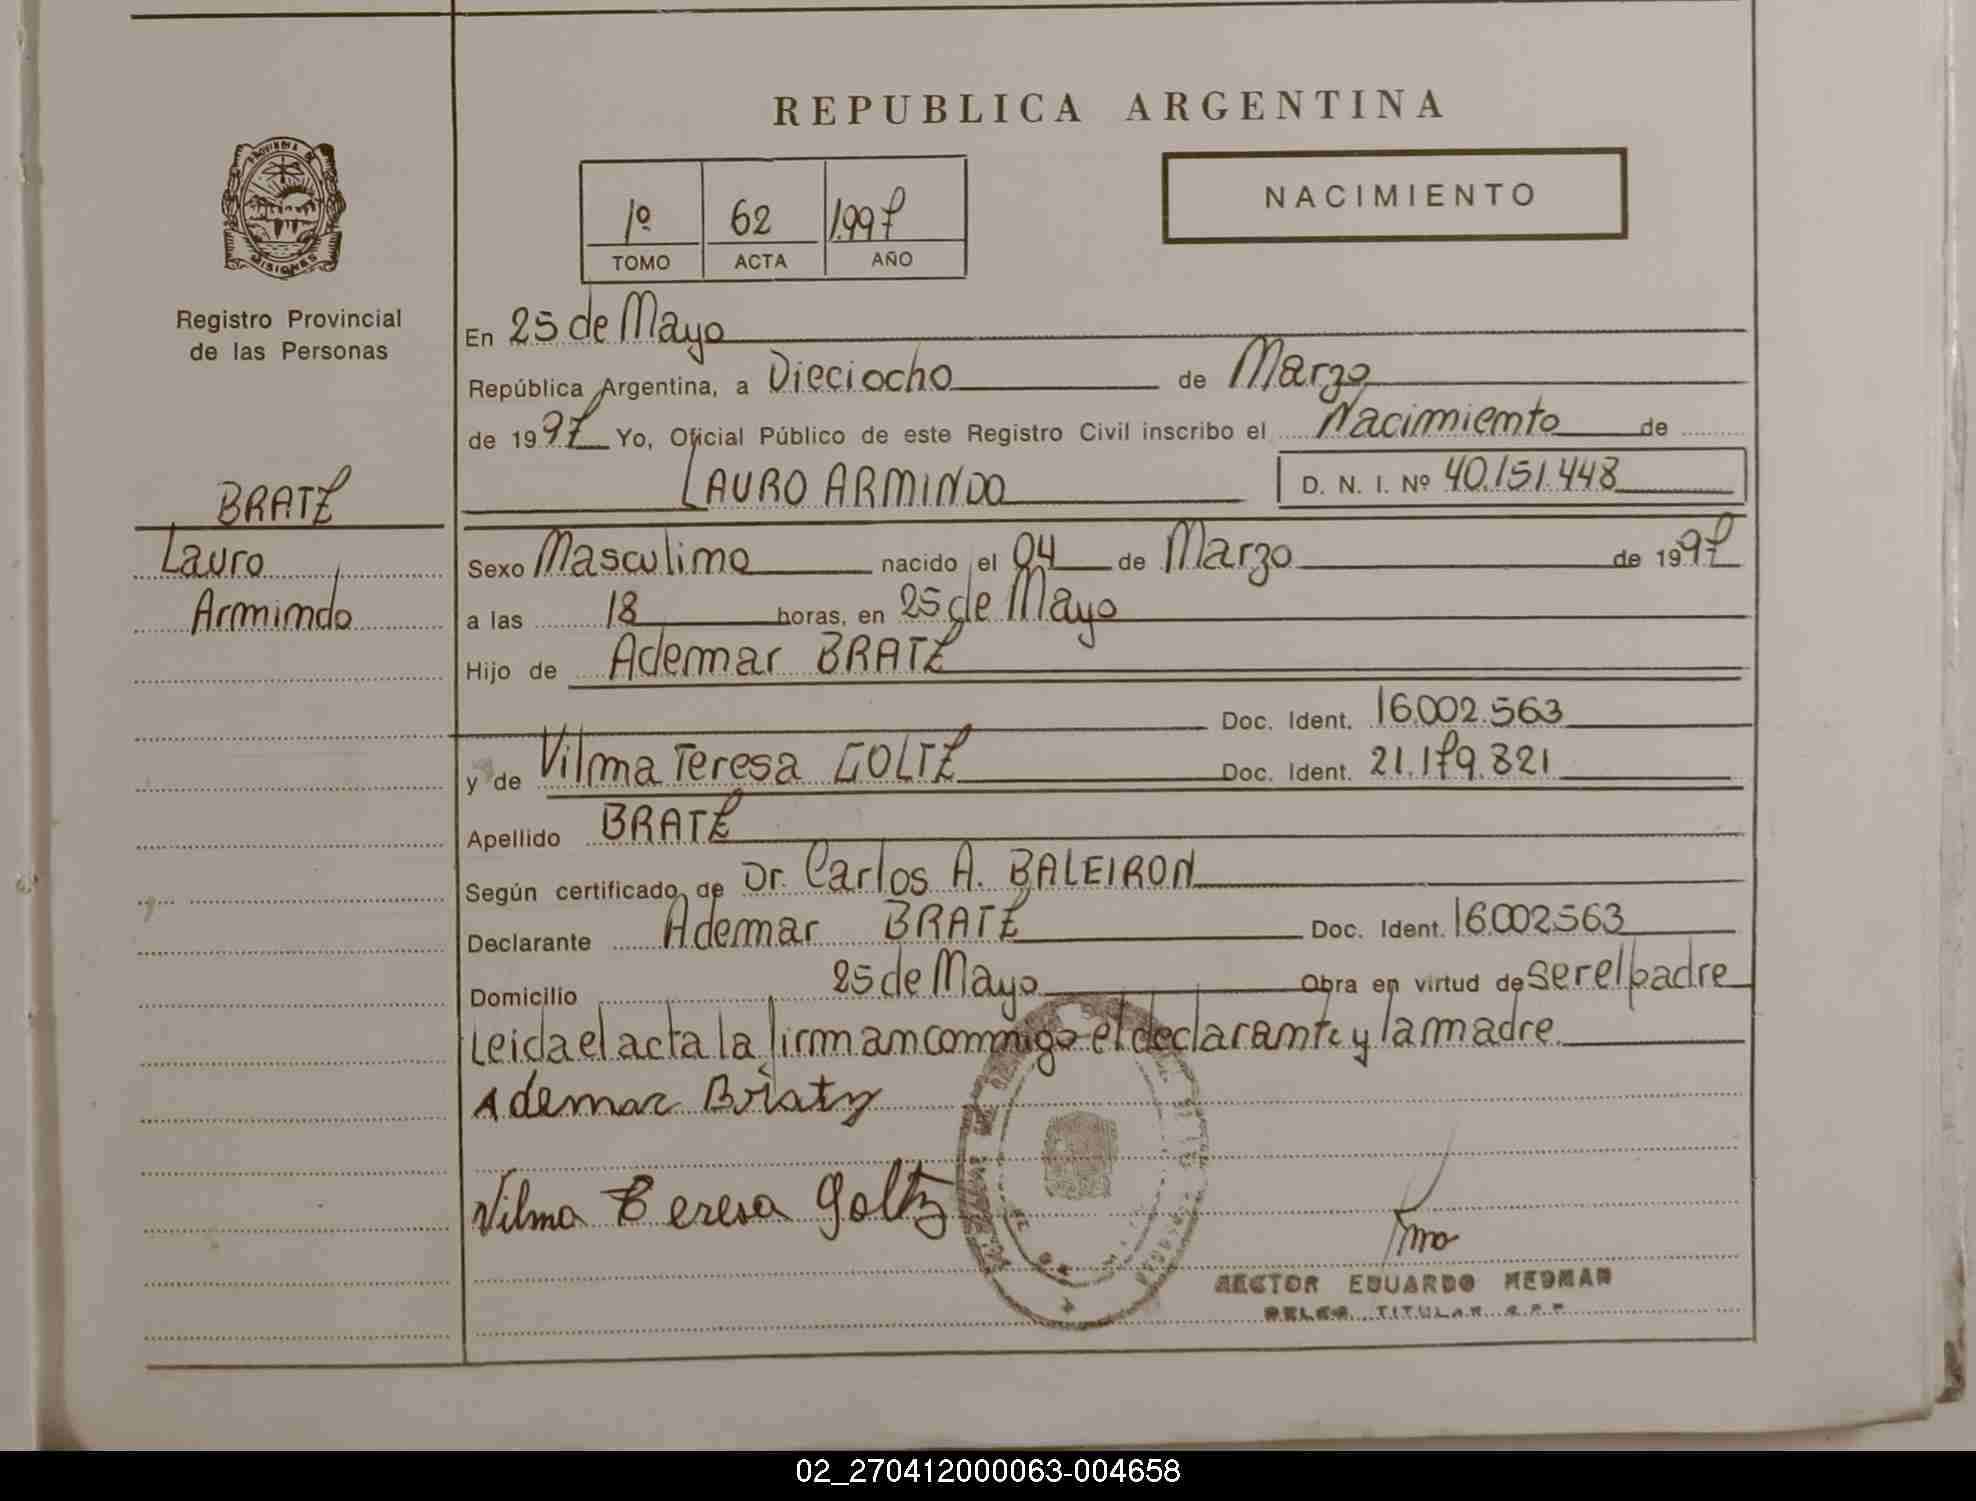 REPUBLICA ARGENTINA
PROVINCIA DE
MISIONES
Registro Provincial
de las Personas
1º 62 1.997
TOMO ACTA AÑO
NACIMIENTO
En 25 de Mayo
República Argentina, a Dieciocho de Marzo
de 1997 Yo, Oficial Público de este Registro Civil inscribo el Nacimiento de
LAURO ARMINDO D. N. I. Nº 40.151.448
BRATZ
Lauro
Armindo
Sexo Masculino nacido el 04 de Marzo de 1997
a las 18 horas, en 25 de Mayo
Hijo de Ademar BRATZ
Doc. Ident. 16.002.563
y de Vilma Teresa GOLTZ Doc. Ident. 21.179.821
Apellido BRATZ
Según certificado de Dr. Carlos A. BALEIRON
Declarante Ademar BRATZ Doc. Ident. 16002563
Domicilio 25 de Mayo Obra en virtud de ser el padre
Leida el acta la firman conmigo el declarante y la madre.
Ademar Bratz
Vilma Teresa Goltz
HECTOR EDUARDO
TITULAR
02_270412000063-004658